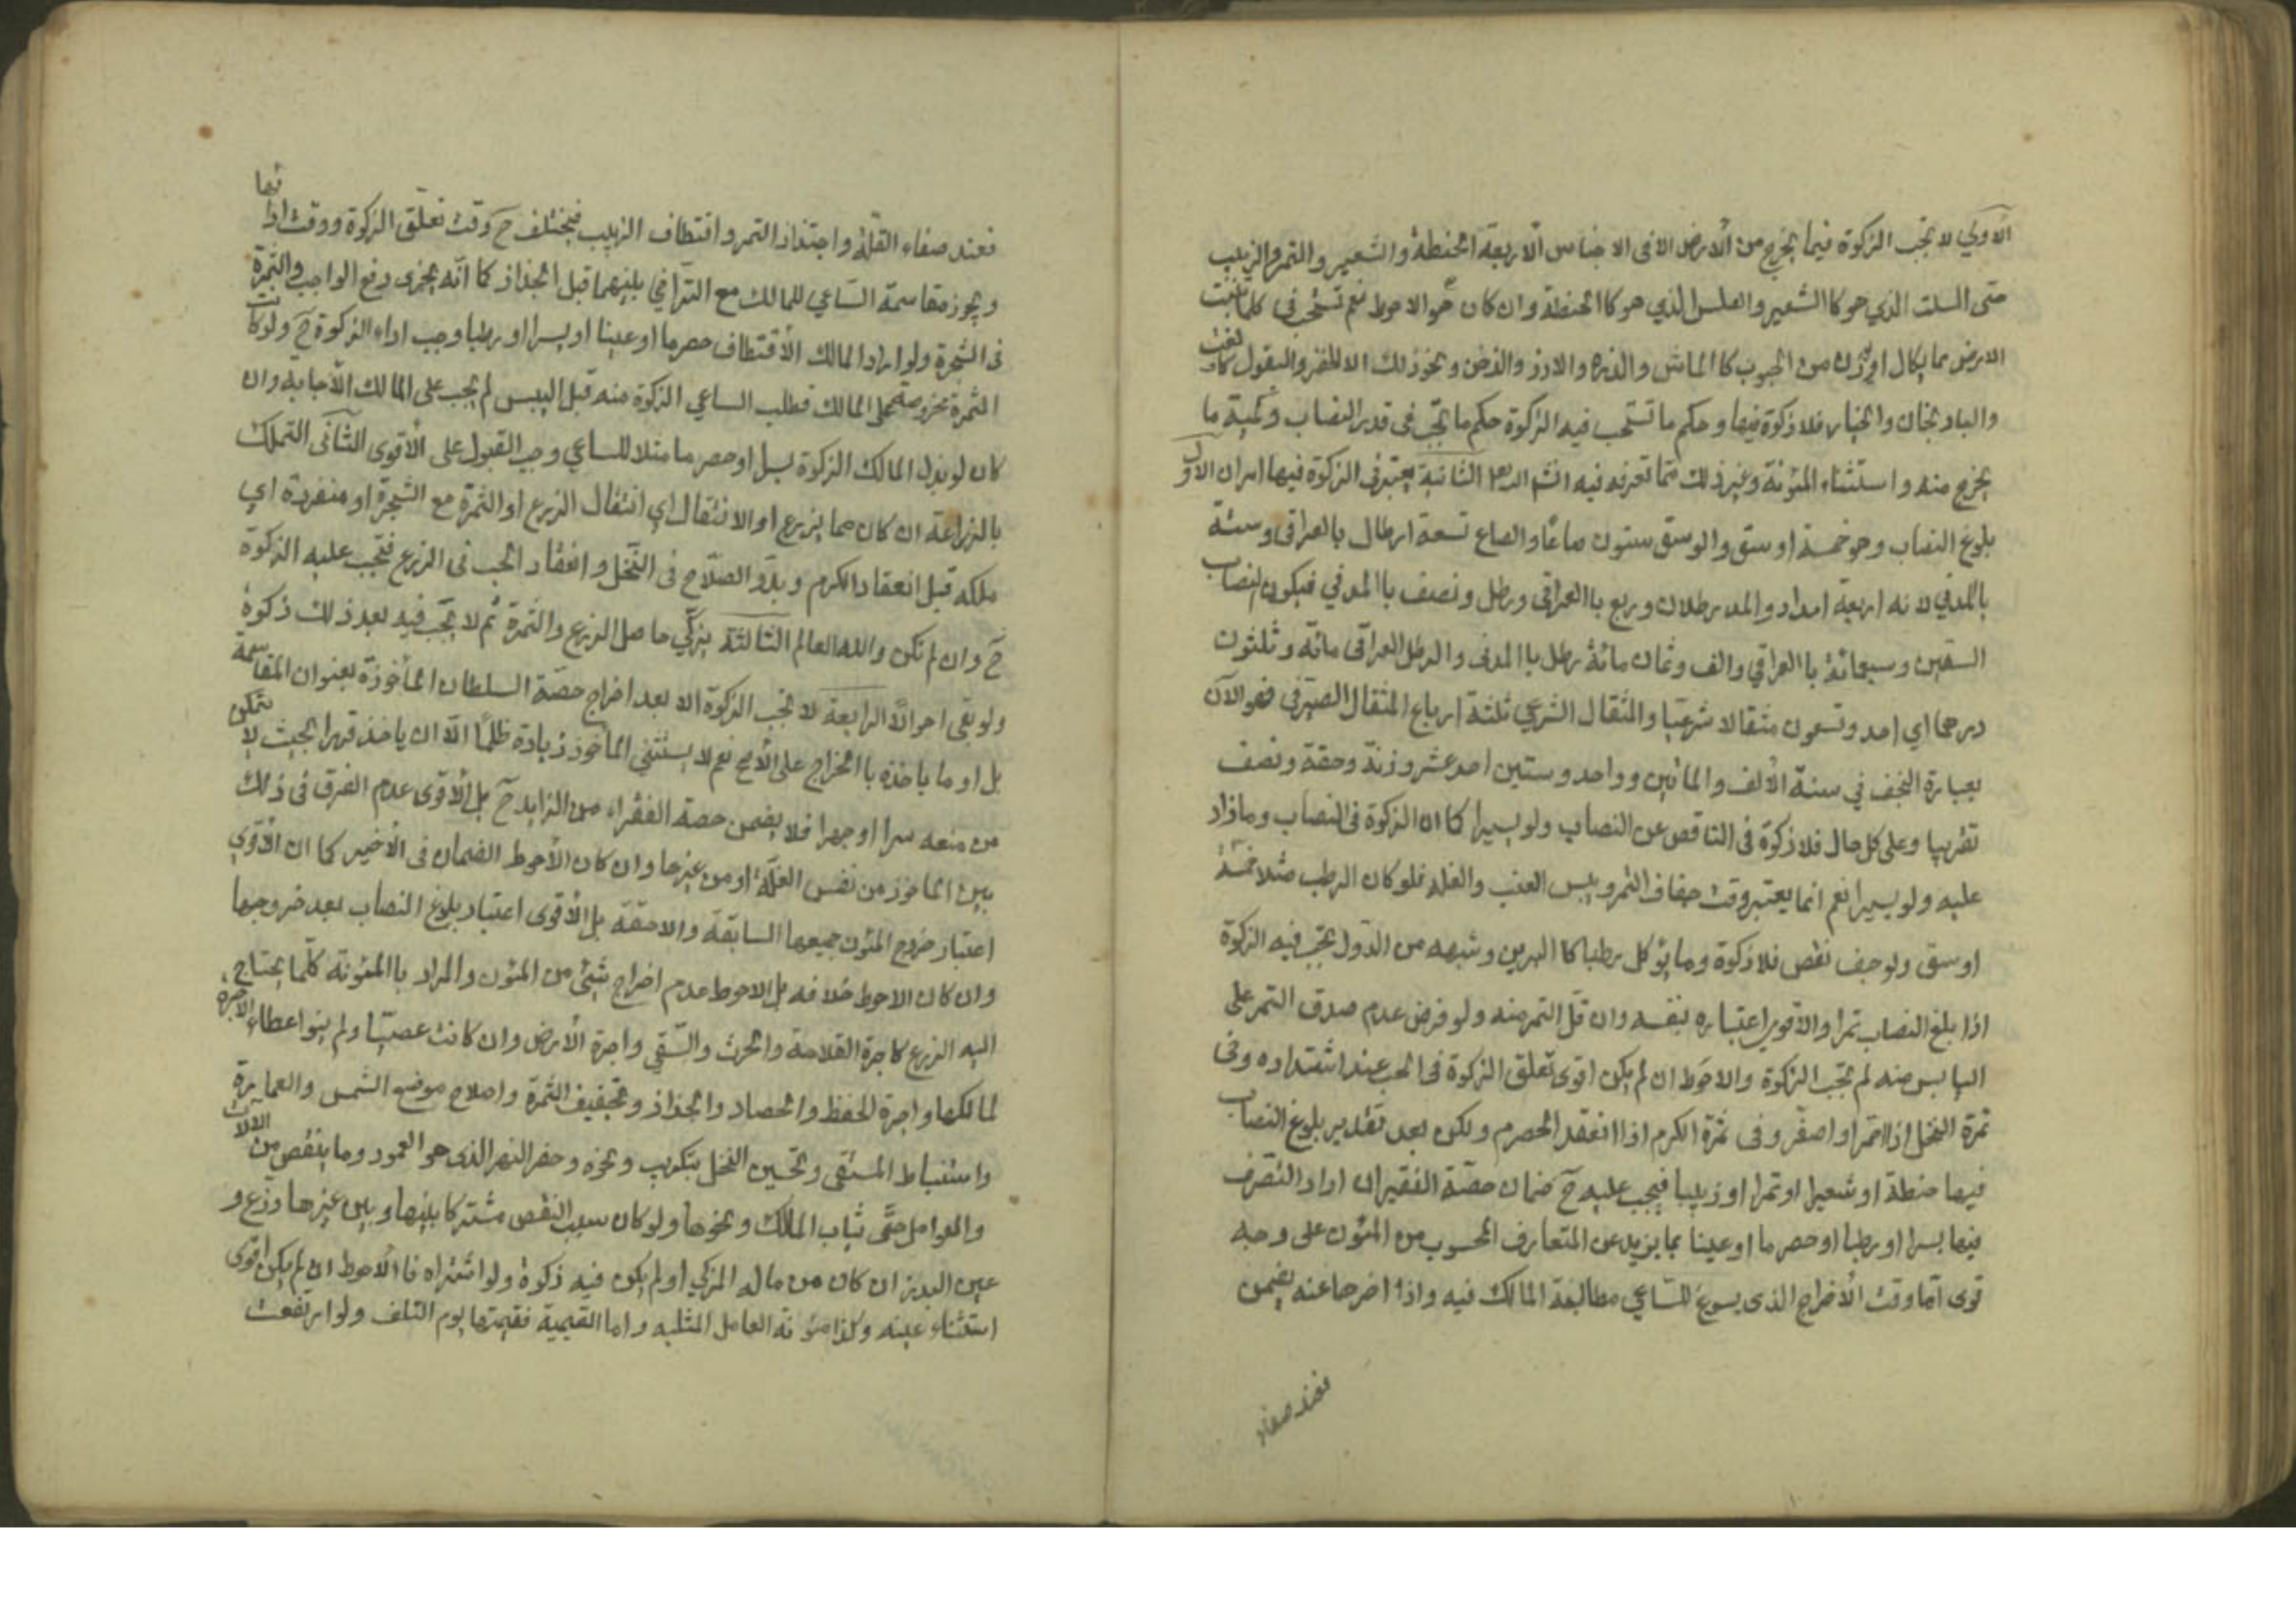 الاولي لا تجب الزكوة فيما يخرج من الارض الا في الاجناس الاربعة الحنطة والشعير والتمر والزبيب
حتى السلت الذي هو كا الشعير والعلس الذي هو كا الحنطة وان كان هو الاحوط نعم تستحب في كلما تنبت
الارض مما يكال او يوزن من الحبوب كا الماش والذره والارز والدخن ونحو ذلك الا الخضر والبقول كا لقت
والباد نجان والخيار فلا زكوة فيها وحكم ما تستحب فيه الزكوة حكم ما تجب في قدر النصاب وكمية ما
يخرج منه واستثناء المئونة وغير ذلك مما تعرفه فيه انشاء الله الثانية يعتبر في الزكوة فيها امران الاول
بلوغ النصاب وهو خمسة اوسق والوسق ستون صاعا والصاع تسعة ارطال بالعراقي وستة
بالمدني لانه اربعة امداد والمد رطلان وربع باالعراقي ورطل ونصف باالمدني فيكون النصاب
الفين وسبعمائة باالعراقي والف وثمان مائة رطل باالمدني والرطل العراقي مائة وثلثون
درهما اي احد وتسعون مثقالا شرعيا والمثقال الشرعي ثلثة ارباع المثقال الصيرفي فهو الآن
بعيارة النجف في سنة الألف والمأتين وواحد وستين احد عشر وزنة وحقة ونصف
تقريبا وعلى كل حال فلا زكوة في الناقص عن النصاب ولو يسيرا كما ان الزكوة في النصاب وما زاد
عليه ولو يسيرا نعم انما يعتبر وقت جفاف التمر ويبس العنب والغله فلو كان الرطب مثلا خمسة
اوسق ولو جف نقص فلا زكوة وما يؤكل رطبا كا البربن وشبهه من الدقل تجب فيه الزكوة
اذا بلغ النصاب تمرا والأقوى اعتباره بنفسه وان قل التمر منه ولو فرض عدم صدق التمر على
اليابس منه لم تجب الزكوة والاحوط ان لم يكن اقوى تعلق الزكوة في الحب عند اشتداده وفي
ثمرة النخل اذا احمر او اصفر وفي ثمرة الكرم اذا انعقد الحصرم ولكن بعد تقدير بلوغ النصاب
فيها حنطة او شعيرا او تمرا او زبيبا فيجب عليه ح ضمان حصة الفقير ان اراد التصرف
فيها بسرا او رطبا او حصرما او عنبا بما يزيد عن المتعارف المحسوب من المئون على وجه
قوى اما وقت الأخراج الذى يسوغ للساعي مطالبة المالك فيه واذا اخرها عنه يضمن
فعند صفاء
فعند صفاء الغلة واجتذاذ التمر واقتطاف الزبيب فيختلف ح وقت تعلق الزكوة ووقت ادائها
ويجوز مقاسمة الساعي للمالك مع التراضي بينهما قبل الجذاذ كما انه يجزى دفع الواجب والثمرة
في الشجرة ولو اراد المالك الأقتطاف حصرما او عنبا او بسرا او رطبا وجب اداء الزكوة ح ولو كانت
الثمرة مخروصة على المالك فطلب الساعي الزكوة منه قبل اليبس لم يجب على المالك الأجابة وان
كان لو بذل المالك الزكوة بسرا او حصرما مثلا للساعي وجب القبول على الأقوى الثاني التملك
بالزراعة ان كان مما يزرع او الانتقال اي انتقال الزرع او الثمرة مع الشجرة او منفردة اي
ملكه قبل انعقاد الكرم وبدو الصلاح في النخل وانعقاد الحب في الزرع فتجب عليه الزكوة
ح وان لم تكن والله العالم الثالثة يزكي حاصل الزرع والثمرة ثم لا تجب فيه بعد ذلك زكوة
ولو بقى احوالا الرابعة لا تجب الزكوة الا بعد اخراج حصة السلطان المأخوذة بعنوان المقاسمة
بل او ما ياخذه باالخراج على الأصح نعم لا يستثنى المأخوذ زيادة ظلما الا ان ياخذ قهرا بحيث لا يتمكن
من منعه سرا او جهرا فلا يضمن حصة الفقراء من الزايد ح بل الأقوى عدم الفرق في ذلك
بين الماخوذ من نفس الغلة او من غيرها وان كان الأحوط الضمان في الأخير كما ان الأقوي
اعتبار خروج المئون جميعها السابقة والاحقة بل الأقوى اعتبار بلوغ النصاب بعد خروجها
وان كان الاحوط خلافه بل الاحوط عدم اخراج شيئ من المئون والمراد باالمئونة كلما يحتاج
اليه الزرع كاجرة الفلاحة والحرث والسقي واجرة الأرض وان كانت غصبيا ولم ينو اعطاء الاجرة
لمالكها واجرة الحفظ والحصاد والجذاذ وتجفيف الثمرة واصلاح موضع الشمس والعمارة
واستنباط المستقى وتحسين النخل بتكريب ونحوه وحفر النهر الذى هو العمود وما ينقص من الالات
والعوامل حتى ثياب المالك ونحوها ولو كان سبب النقص مشتركا بينها وبين غيرها وزع و
عين البذر ان كان من ماله المزكي او لم يكن فيه زكوة ولو اشتراه فا الأحوط ان لم يكن اقوى
استثناء عينه وكذا مئونة العامل المثلية واما القيمية فقيمتها يوم التلف ولو ارتفعت